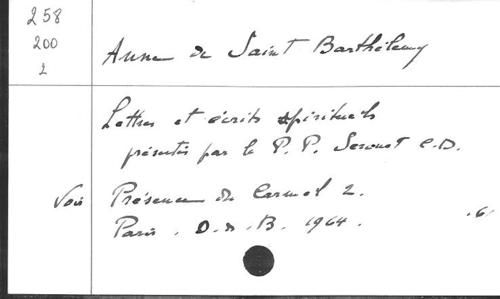 258
200
2
Anne de Saint Barthélemy
Lettres et écrits spirituels
présentés par le P. P. Serouet C.D.
Voir Présence du Carmel 2.
Paris. D. de B. 1964. .6.